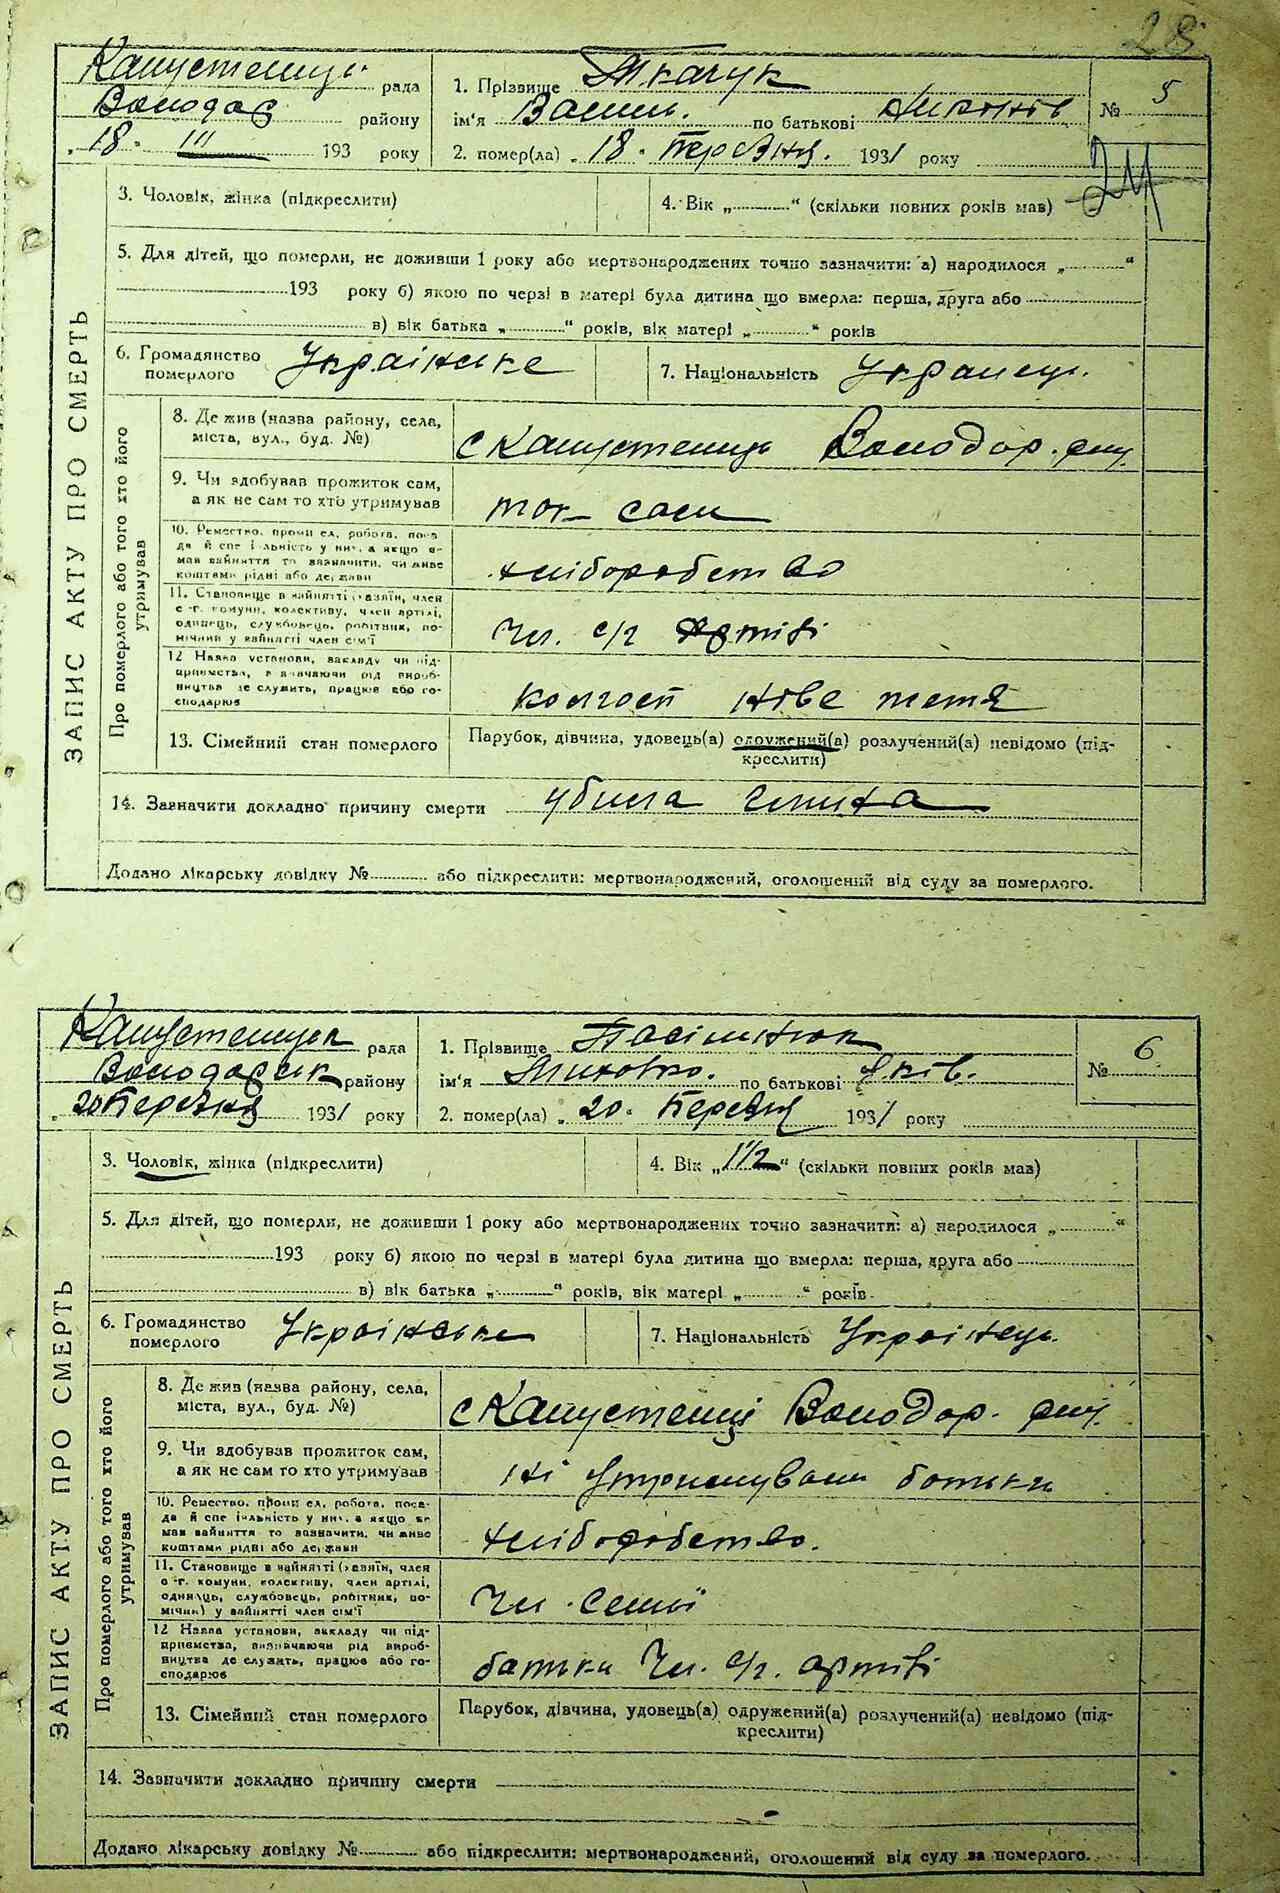 28
Капустенець рада
Володар району
„18„ III 193 року
1. Прізвище Ткачук
ім'я Василь. по батькові
2. помер(ла) „18. Березня. 1931 року
№ 5
3. Чоловік, жінка (підкреслити)
4. Вік „ “ (скільки повних років мав)
5. Для дітей, що померли, не доживши 1 року або мертвонароджених точно зазначити: а) народилося „ “
193 року б) якою по черзі в матері була дитина що вмерла: перша, друга або
в) вік батька „ “ років, вік матері „ “ років
6. Громадянство Українське
померлого
7. Національність Украінець.
ЗАПИС АКТУ ПРО СМЕРТЬ
Про померлого або того хто його
утримував
8. Де жив (назва району, села,
міста, вул., буд. №)
с Капустенець Володар. рну.
9. Чи здобував прожиток сам,
а як не сам то хто утримував
так сам
10. Ремество, промисел, робота, поса
да й спеціяльність у ній, а якщо не
мав зайняття то зазначити, чи живе
коштами рідні або держави
хліборобство
11. Становище в зайнятті (хазяїн, член
с.-г. комуни, колективу, член артілі,
одинець, службовець, робітник, по-
мічний у зайнятті член сім'ї
Чл. с/г Артілі
12 Назва установи, закладу чи під-
приємства, визначаючи рід вироб-
ництва де служить, працює або го-
сподарює
колгосп Нове життя
13. Сімейний стан померлого
Парубок, дівчина, удовець(а) одружений(а) розлучений(а) невідомо (під-
креслити)
14. Зазначити докладно причину смерти убила
Додано лікарську довідку № або підкреслити: мертвонароджений, оголошений від суду за померлого.
Капустенецьк рада
Володарськ району
„20 Березня 1931 року
1. Прізвище
ім'я по батькові Яків.
2. помер(ла) „20. Березня 1931 року
№ 6
3. Чоловік, жінка (підкреслити)
4. Вік „1 1/2“ (скільки повних років мав)
5. Для дітей, що померли, не доживши 1 року або мертвонароджених точно зазначити: а) народилося „ “
193 року б) якою по черзі в матері була дитина що вмерла: перша, друга або
в) вік батька „ “ років, вік матері „ “ років
6. Громадянство Українське
померлого
7. Національність Українець.
ЗАПИС АКТУ ПРО СМЕРТЬ
Про померлого або того хто його
утримував
8. Де жив (назва району, села,
міста, вул., буд. №)
с Капустенці Володар. рну.
9. Чи здобував прожиток сам,
а як не сам то хто утримував
ні утримували батьки
10. Ремество, промисел, робота, поса-
да й спеціяльність у ній, а якщо не
мав зайняття то зазначити, чи живе
коштами рідні або держави
хліборобство.
11. Становище в зайнятті (хазяїн, член
с.-г. комуни, колективу, член артілі,
одинець, службовець, робітник, по-
мічний у зайнятті член сім'ї
Чл. семьї
12 Назва установи, закладу чи під-
приємства, визначаючи рід вироб-
ництва де служить, працює або го-
сподарює
батьки Чл. с/г. артілі
13. Сімейний стан померлого
Парубок, дівчина, удовець(а) одружений(а) розлучений(а) невідомо (під-
креслити)
14. Зазначити докладно причину смерти
Додано лікарську довідку № або підкреслити: мертвонароджений, оголошений від суду за померлого.